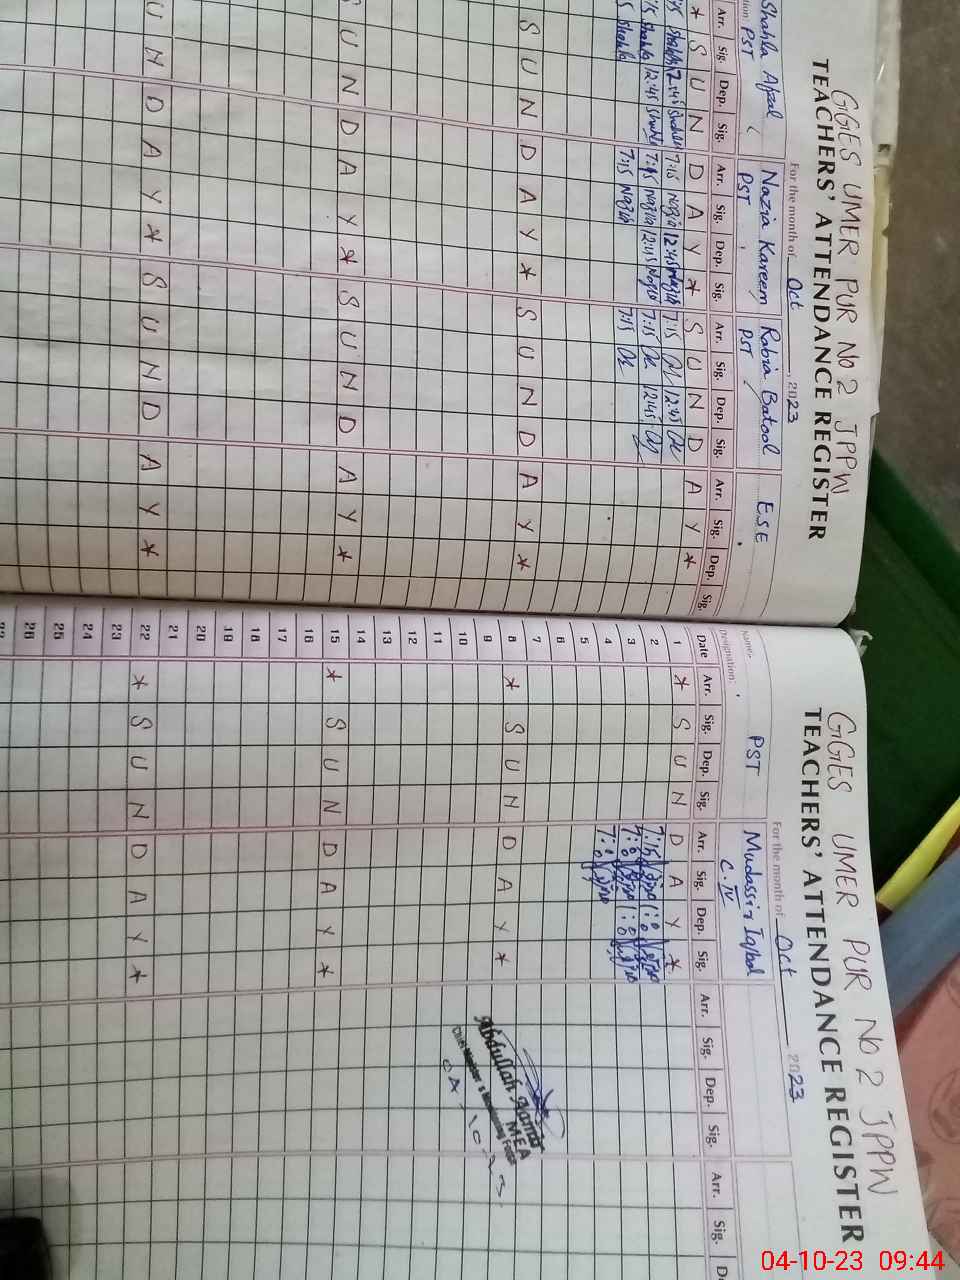 GGES UMER PUR No 2 JPPW
TEACHERS' ATTENDANCE REGISTER
For the month of Oct, 2023
Shahla Afzal Nazia Kareem Rabia Batool E.S.E
PST PST PST
Arr. Sig. Dep. Sig. Arr. Sig. Dep. Sig. Arr. Sig. Dep. Sig. Arr. Sig. Dep. Sig.
* S U N D A Y * S U N D A Y *
7:15 Nazia 12:45 Nazia 7:15 12:45
7:15 Shahla 12:45 Shahla 7:15 Nazia 12:45 Nazia 7:15 12:45
Shahla 7:15 Nazia 7:15
S U N D A Y * S U N D A Y *
U N D A Y * S U N D A Y *
U N D A Y * S U N D A Y *
GGES UMER PUR No 2 JPPW
TEACHERS' ATTENDANCE REGISTER
For the month of Oct 2023
Name:- Mudassir Iqbal
Designation: PST C.IV
Date Arr. Sig. Dep. Sig. Arr. Sig. Dep. Sig. Arr. Sig. Dep. Sig. Arr. Sig.
1 * S U N D A Y *
2 7:15
3
4
5
6
7
8 * S U N D A Y *
9
10
11
12
13
14
15 * S U N D A Y *
16
17
18
19
20
21
22 * S U N D A Y *
23
24
25
26
Abdullah Aamir
MEA
04-10-23
04-10-23 09:44